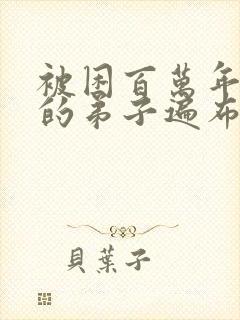 被困百萬年
的弟子遍布
貝葉子